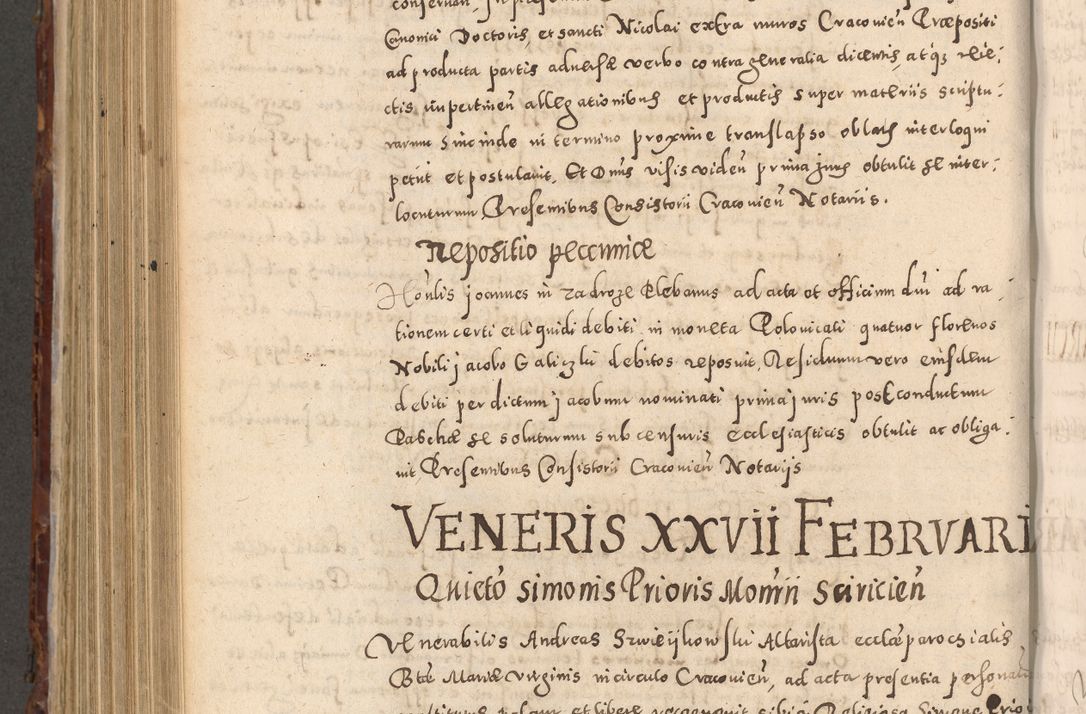 Canonici Doctoris, et sancti Nicolai extra muros Cracovień Præpositi
ad producta partis adversæ verbo contra generalia dicentis, atq3 reie:
ctis impertineń allegationibus et productis super materiis scriptu:
rarum hincinde in termino proxime translapso oblatis interloqui
petiit et postulavit. Et Dn̄s visis videń prima juris obtulit se inter:
locuturum Presentibus Consistorii Cracovień Notariis.
Repositio peccuniæ
Hon̄lis joannes in Zadroze Plebanus ad acta et officium dn̄i ad ra:
tionem certi et liquidi debiti in moneta Polonicali quatuor florenos
Nobili jacobo Galiczki debitos reposuit, Residuum vero eiusdem
debiti per dictum jacobum nominati prima juris post conductum
Paschæ se soluturum sub censuris ecclesiasticis obtulit ac obliga:
vit, Presentibus Consistorii Cracovień Notariis
VENERIS XXVII FEBRVARI
Quietō simonis Prioris Monrii Sciricień
Venerabilis Andreas Szwieijkowski Altarista ecclæ parochialis
Btæ Mariæ virginis in circulo Cracovień, ad acta presentia personalr
palam et libere recognovit sibi a Religioso Simone Prio